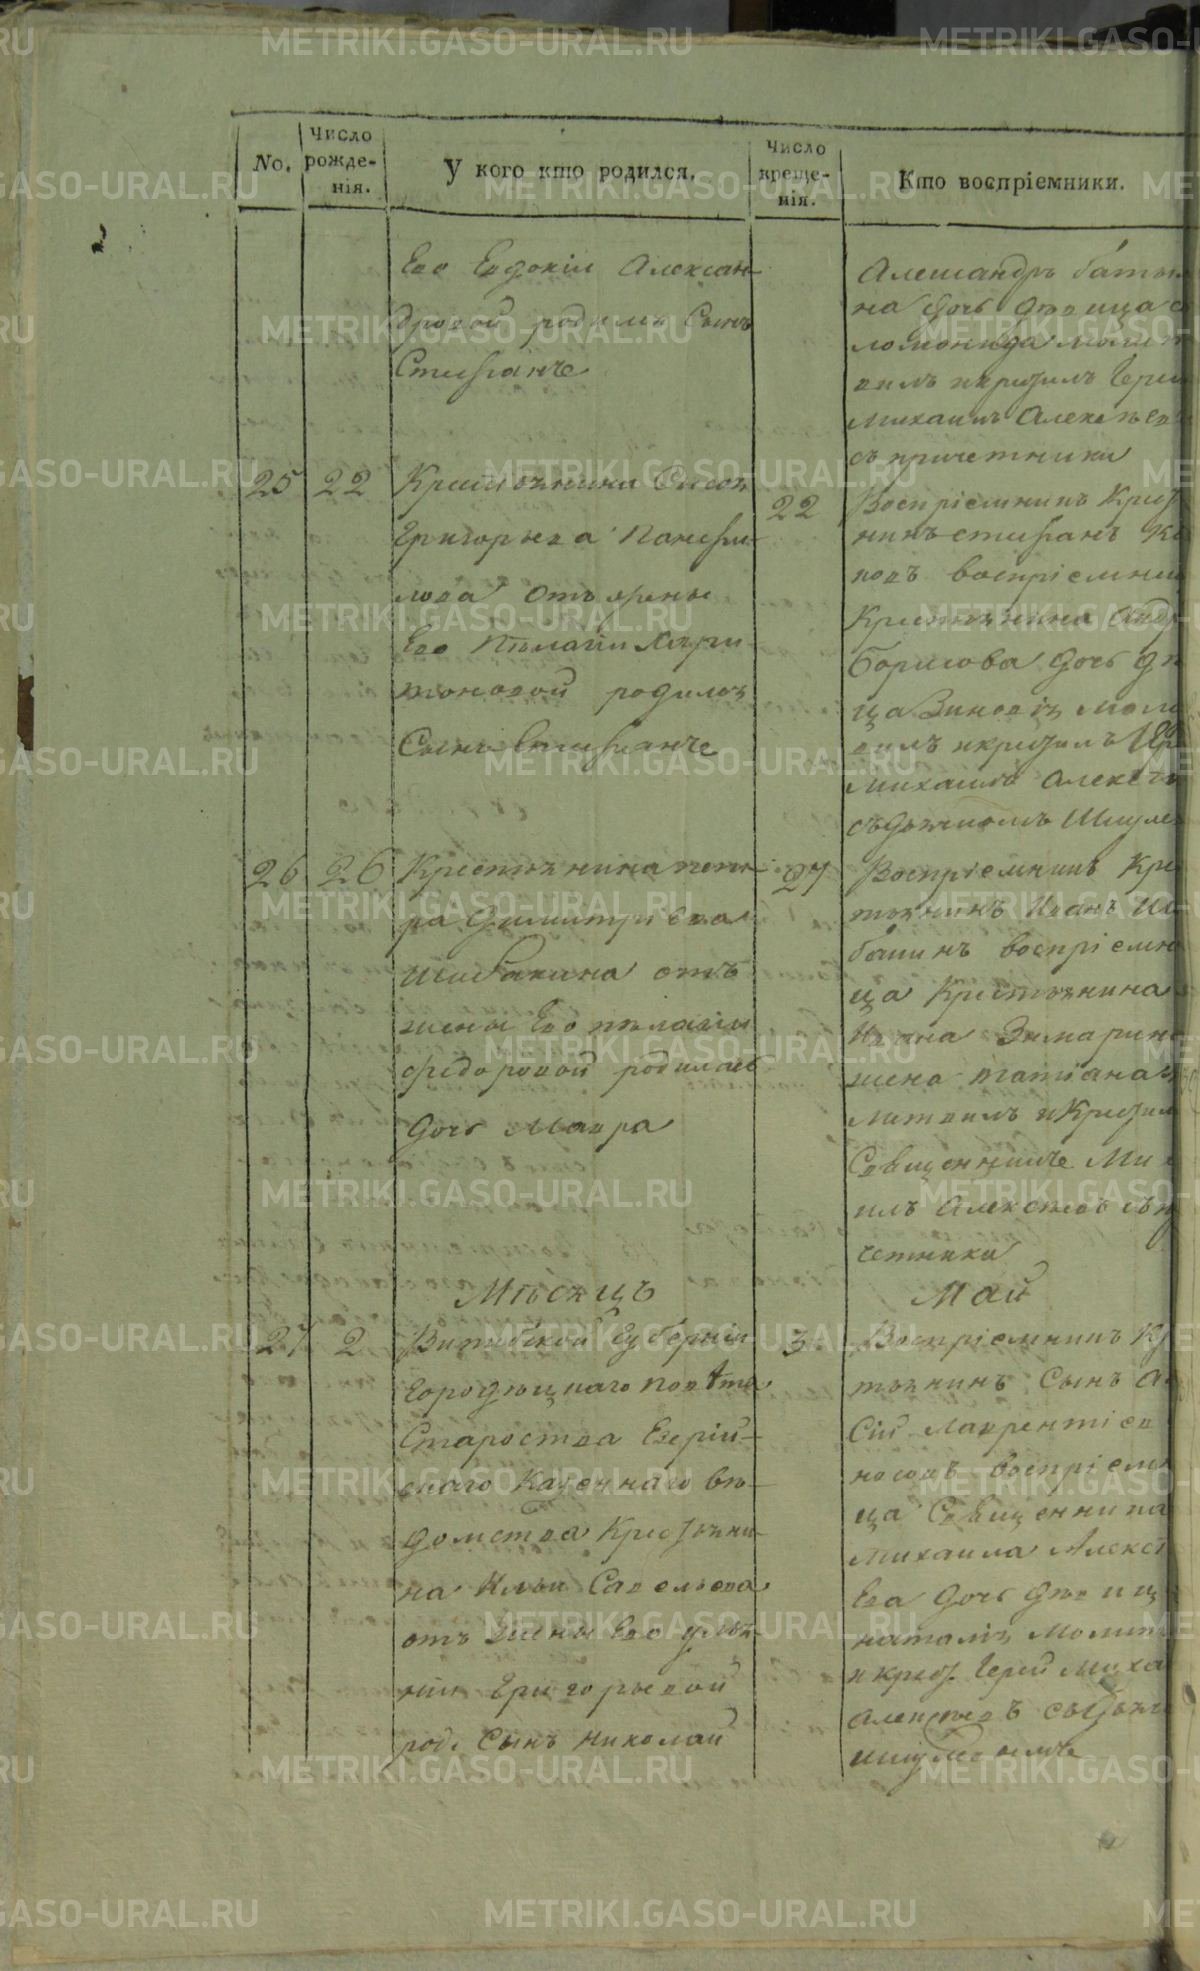 No.
Число рожде-нія.
У кого кто родился.
Число креще-нія.
Кто воспріемники.
Его Евдокіи Алексан-
дровой родился Сынъ
Стефанъ
Александръ
на дочь девица
вилъ и крестилъ Іерей
Михаилъ Алексѣевъ
съ причетники
25
22
Крестьянина Сисоя
Григорьева Панфи-
лова отъ жены
Его Пелагіи Хари-
тоновой родился
Сынъ Стефанъ
22
Воспріемникъ Крест
нинъ Стефанъ
повъ воспріемни
Крестьянина Андр
Борисова дочь дѣ
ца Зиновія моли
вилъ и крестилъ Іер
Михаилъ Алексѣ
съ дьячкомъ
26
26
Крестьянина пет-
ра Димитріева
Шибакина отъ
жены Его пелагіи
федоровой родилась
дочь Мавра
27
Воспріемникъ Кре
тьянинъ Иванъ Ши
бакинъ воспріемни
ца Крестьянина
Ивана
жена татіана
литвилъ и Крестил
Священникъ Ми
илъ Алексѣевъ съ пр
четники
Мѣсяцъ
Май
27
2
Витебской Губерніи
Городецкаго повѣта
Староства Езерій-
скаго Казеннаго вѣ-
домства Крестьяни-
на Ильи Савельева
отъ жены Его улья-
ніи Григорьевой
род. Сынъ Николай
3
Воспріемникъ Кр
тьянинъ Сынъ А
Сій Лаврентіев
носовъ воспріемн
ца Священника
Михаила Алексѣ
Ева дочь девиц
наталія молит
и крест. Іерей Миха
Алексѣевъ съ дьячк
METRIKI.GASO-URAL.RU